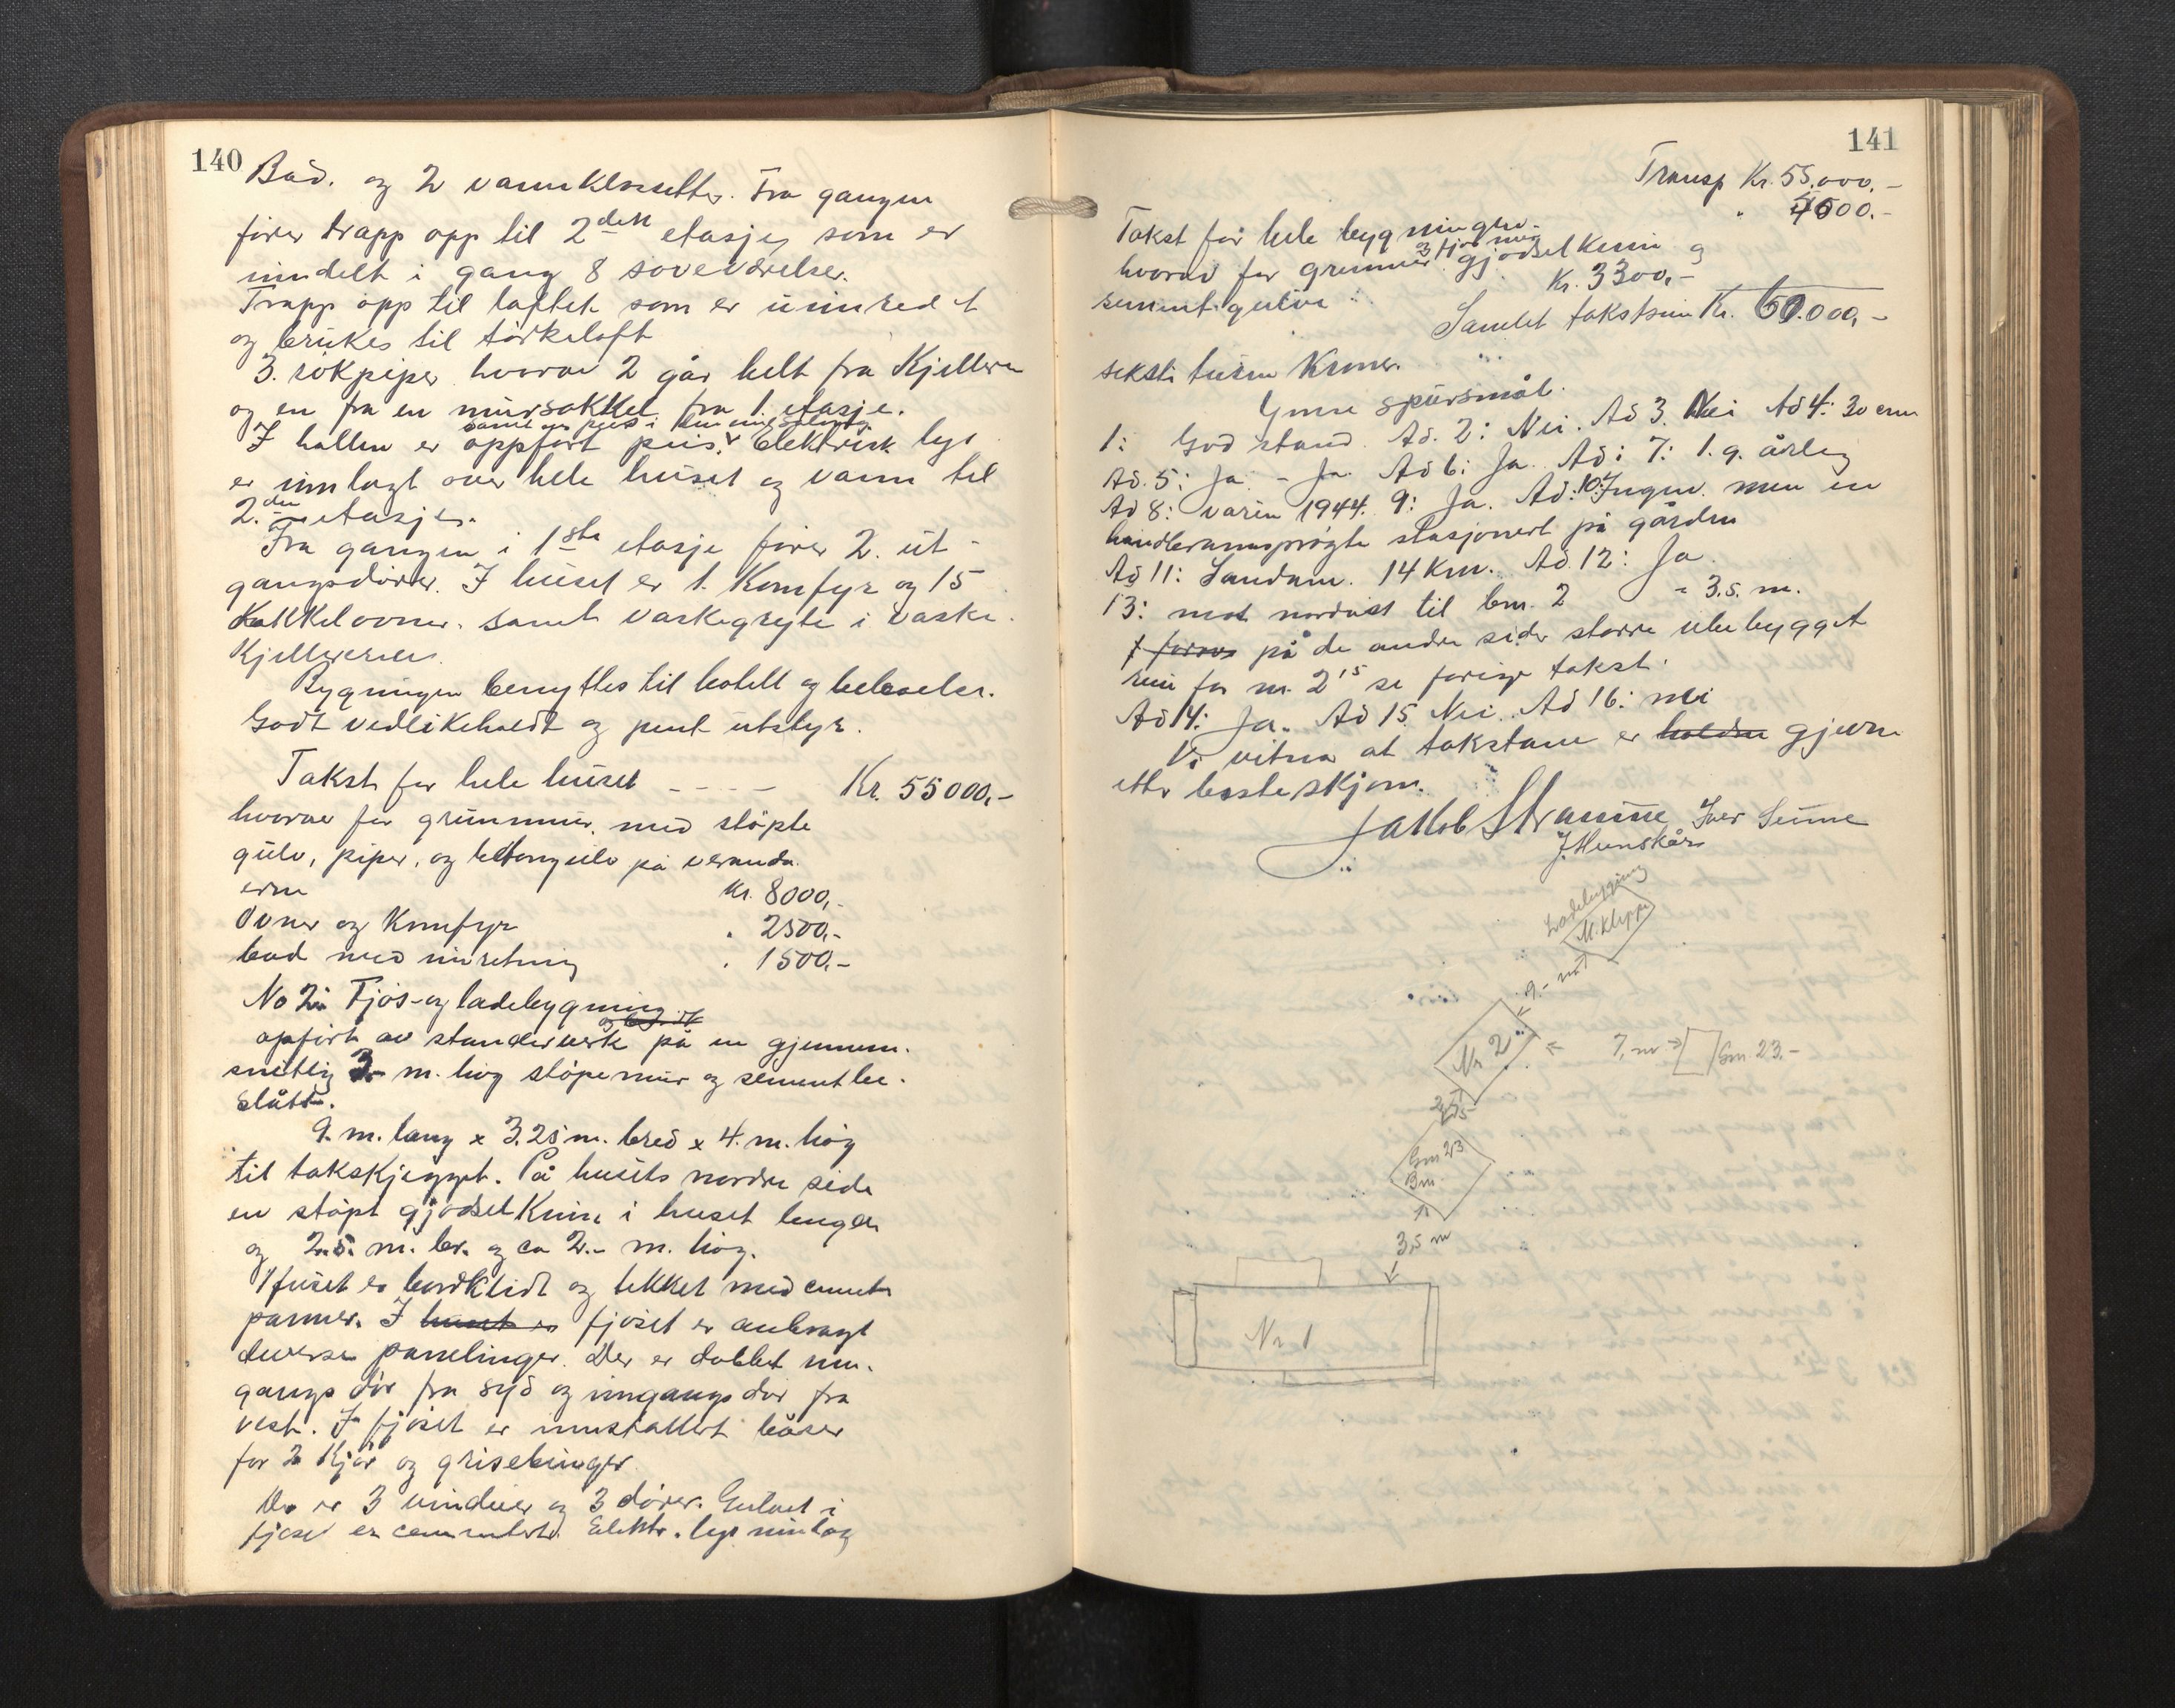 140
Bad. og 2 vannklosetter. Fra gangen
fører trapp opp til 2den etasje, som er
inndelt i gang 8 soveværelser.
Trapp opp til loftet som er uinredet
og brukes til tørkeloft
3. rökpiper hvorav 2 går helt fra Kjelleren
og en fra en mursokkel fra 1. etasje.
samt en peis i
I hallen er oppført peis. Elektrisk lys
er innlagt over hele huset og vann til
2.den etasje.
Fra gangen i 1ste etasje fører 2. ut-
gangsdører. I huset er 1. Komfyr og 15
Kakkelovner. samt vaskegryte i vaske.
Kjelleren.
Bygningen benyttes til hotell og beboelse.
Godt vedlikeholdt og pent utstyr.
Takst for hele huset ---- Kr. 55000,-
hvorav for grunnmur, med støpte
gulv, piper, og betonggulv på veranda
erne Kr. 8000,-
Ovner og Komfyr " 2500,-
bad med inretning " 1500,-
No 2: Fjøs- og ladebygning
opført av standerverk på en gjennem.
snitlig 3- m. høg støpemur og sementbe.
slått.
9. m. lang x 3.25 m. bred x 4. m. høg
til takskjegget. På husets nordre side
en støpt gjødselkum i huset lengde
og 2.5. m. br. og ca 2.- m. høg.
Huset er bordklædt og tekket med cement
panner. I huset er fjøset er anbragt
diverse panelinger. Der er dobbel inn.
gangs dør fra syd og inngangs dør fra
vest. I fjøset er innstallert båser
for 2 Kjør og grisebinger
Der er 3 vinduer og 3 dører. Gulvet i
fjøset er cementert. Elektr. lys innlag
141
Transp Kr. 55.000.-
" 4500.-
Takst for hele bygningen-
hvorav for grunnmur gjødselkum og
sementgulv Kr. 3300,-
Samlet takstsum Kr. 60.000,-
seksti tusen Kroner.
Ymse spursmål.
1: God stand. Ad. 2: Nei. Ad 3. Nei Ad 4: 30 cm
Ad. 5: Ja. - Ja. Ad 6: Ja. Ad: 7: 1. g. årleg
Ad 8: våren 1944. 9: Ja. Ad: 10: Ingen. men en
håndbrannsprøyte stasjonert på gården
Ad 11: Sandane. 14 Km. Ad. 12: Ja.
13: mot nordvest til br. 2 - 3.5. m.
på de andre sider større ubebygget
rum for nr. 2 se forige takst.
Ad 14: Ja. Ad 15. Nei. Ad 16: nei
Vi vitna at takstane er holden gjevne
etter beste skjøn.
Jakob Iver Seime
J. Hunskår
Ladebygning
M. Kleppe
9.- m
Nr 2
7, m
Gm. 23.-
Gm 23
Bm.
3,5 m
Nr 1